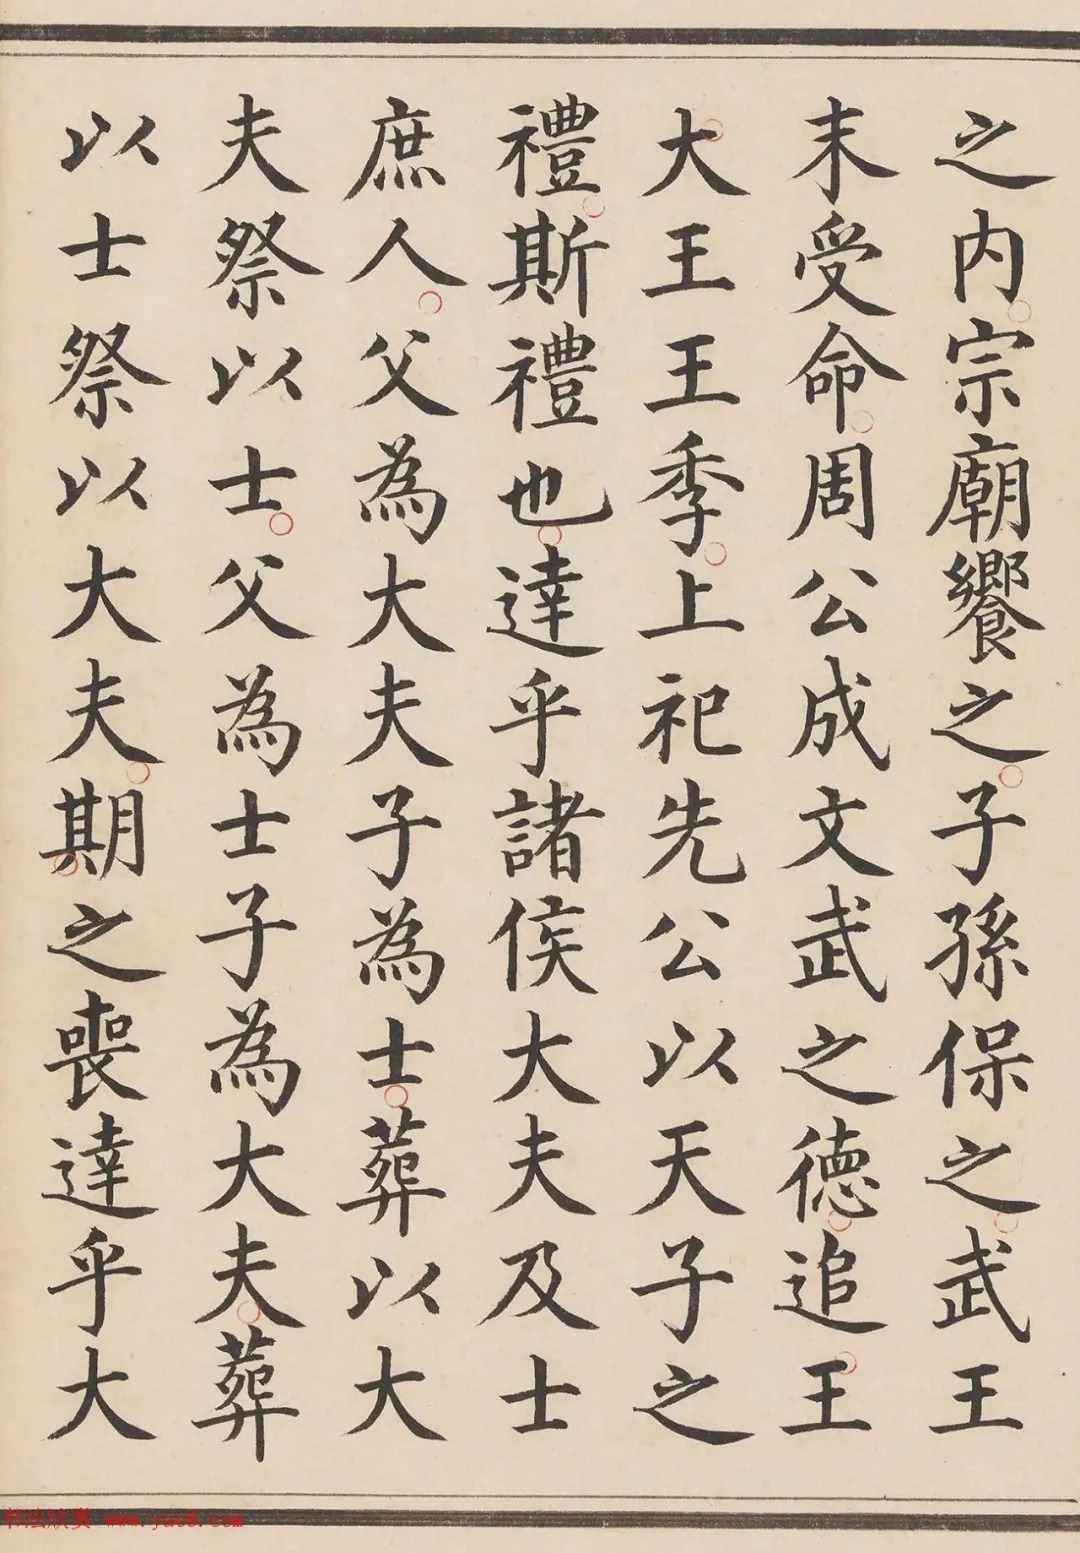 之内宗廟饗之子孫保之武王
末受命周公成文武之德追王
大王王季上祀先公以天子之
禮斯禮也達乎諸侯大夫及士
庶人父為大夫子為士葬以大
夫祭以士父為士子為大夫葬
以士祭以大夫期之喪達乎大
书法欣赏 www.yac8.com